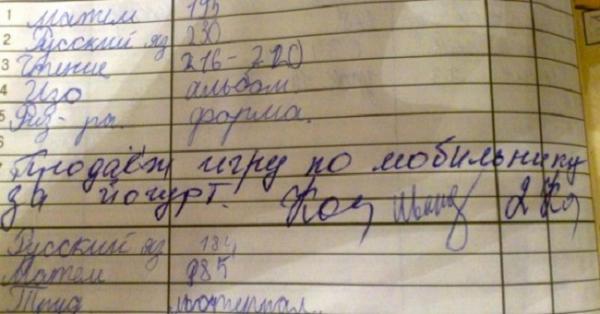 1 Матем 195
2 Русский яз 230
3 Чтение 216-220
4 Изо альбом
5 Физ-ра. форма.
7 Продаёж игру по мобильнику
за йогурт. 2
Русский яз 184
Матем 985
Труд материал.